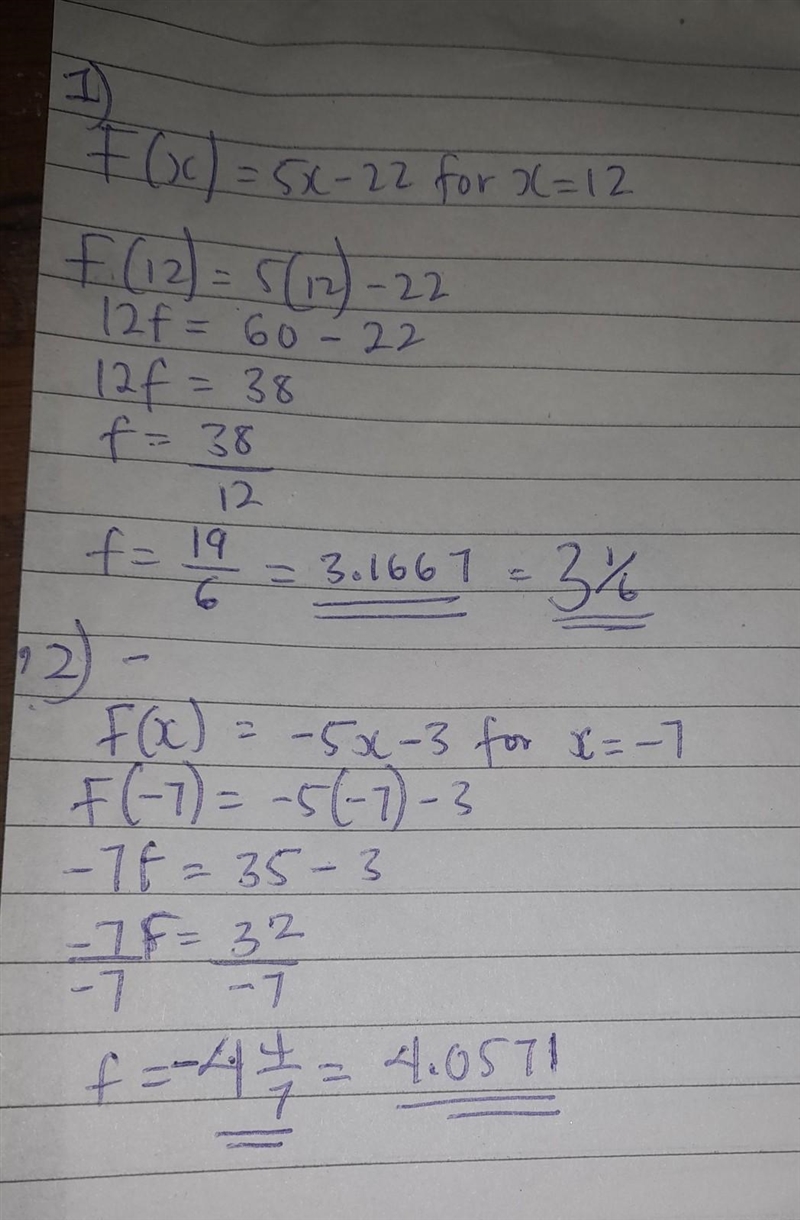 1)
F(x) = 5x - 22 for x = 12
F(12) = 5(12) - 22
12f = 60 - 22
12f = 38
f = 38/12
f = 19/6 = 3.1667 = 3 1/6
2) -
F(x) = -5x - 3 for x = -7
F(-7) = -5(-7) - 3
-7f = 35 - 3
-7f/-7 = 32/-7
f = -4 4/7 = 4.0571